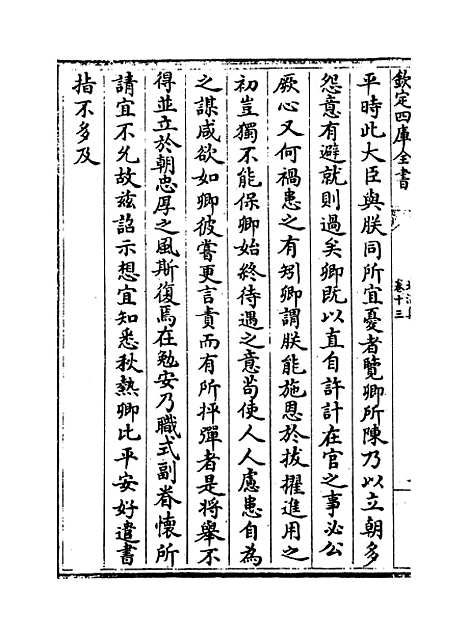 欽定四庫全書
卷十三
平時此大臣與朕同所宜憂者覽卿所陳乃以立朝多
怨意有避就則過矣卿既以直自許計在官之事必公
厥心又何禍患之有矧卿謂朕能施恩於拔擢進用之
初豈獨不能保卿始終待遇之意茍使人人慮患自為
之謀咸欲如卿彼嘗更言責而有所抨彈者是將舉不
得並立於朝忠厚之風斯復焉在勉安乃職式副眷懷所
請宜不允故兹詔示想宜知悉秋熱卿比平安好遣書
指不多及